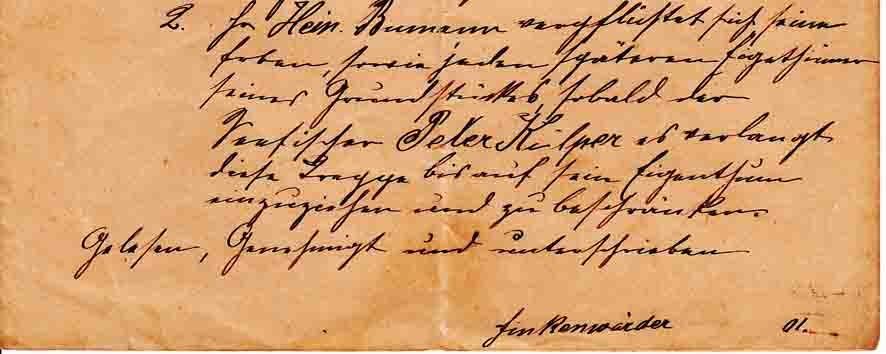 2. Hr Hein. Bumann verpflichtet sich seine
Erben, sowie jeden späteren Eigethümer
seines Grundstückes, sobald der
Seefischer Peter Külper es verlangt
diese Treppe bis auf sein Eigenthum
einzuziehen und zu beschränken.
Gelesen, Genehmigt und unterschrieben
Finkenwärder 01.